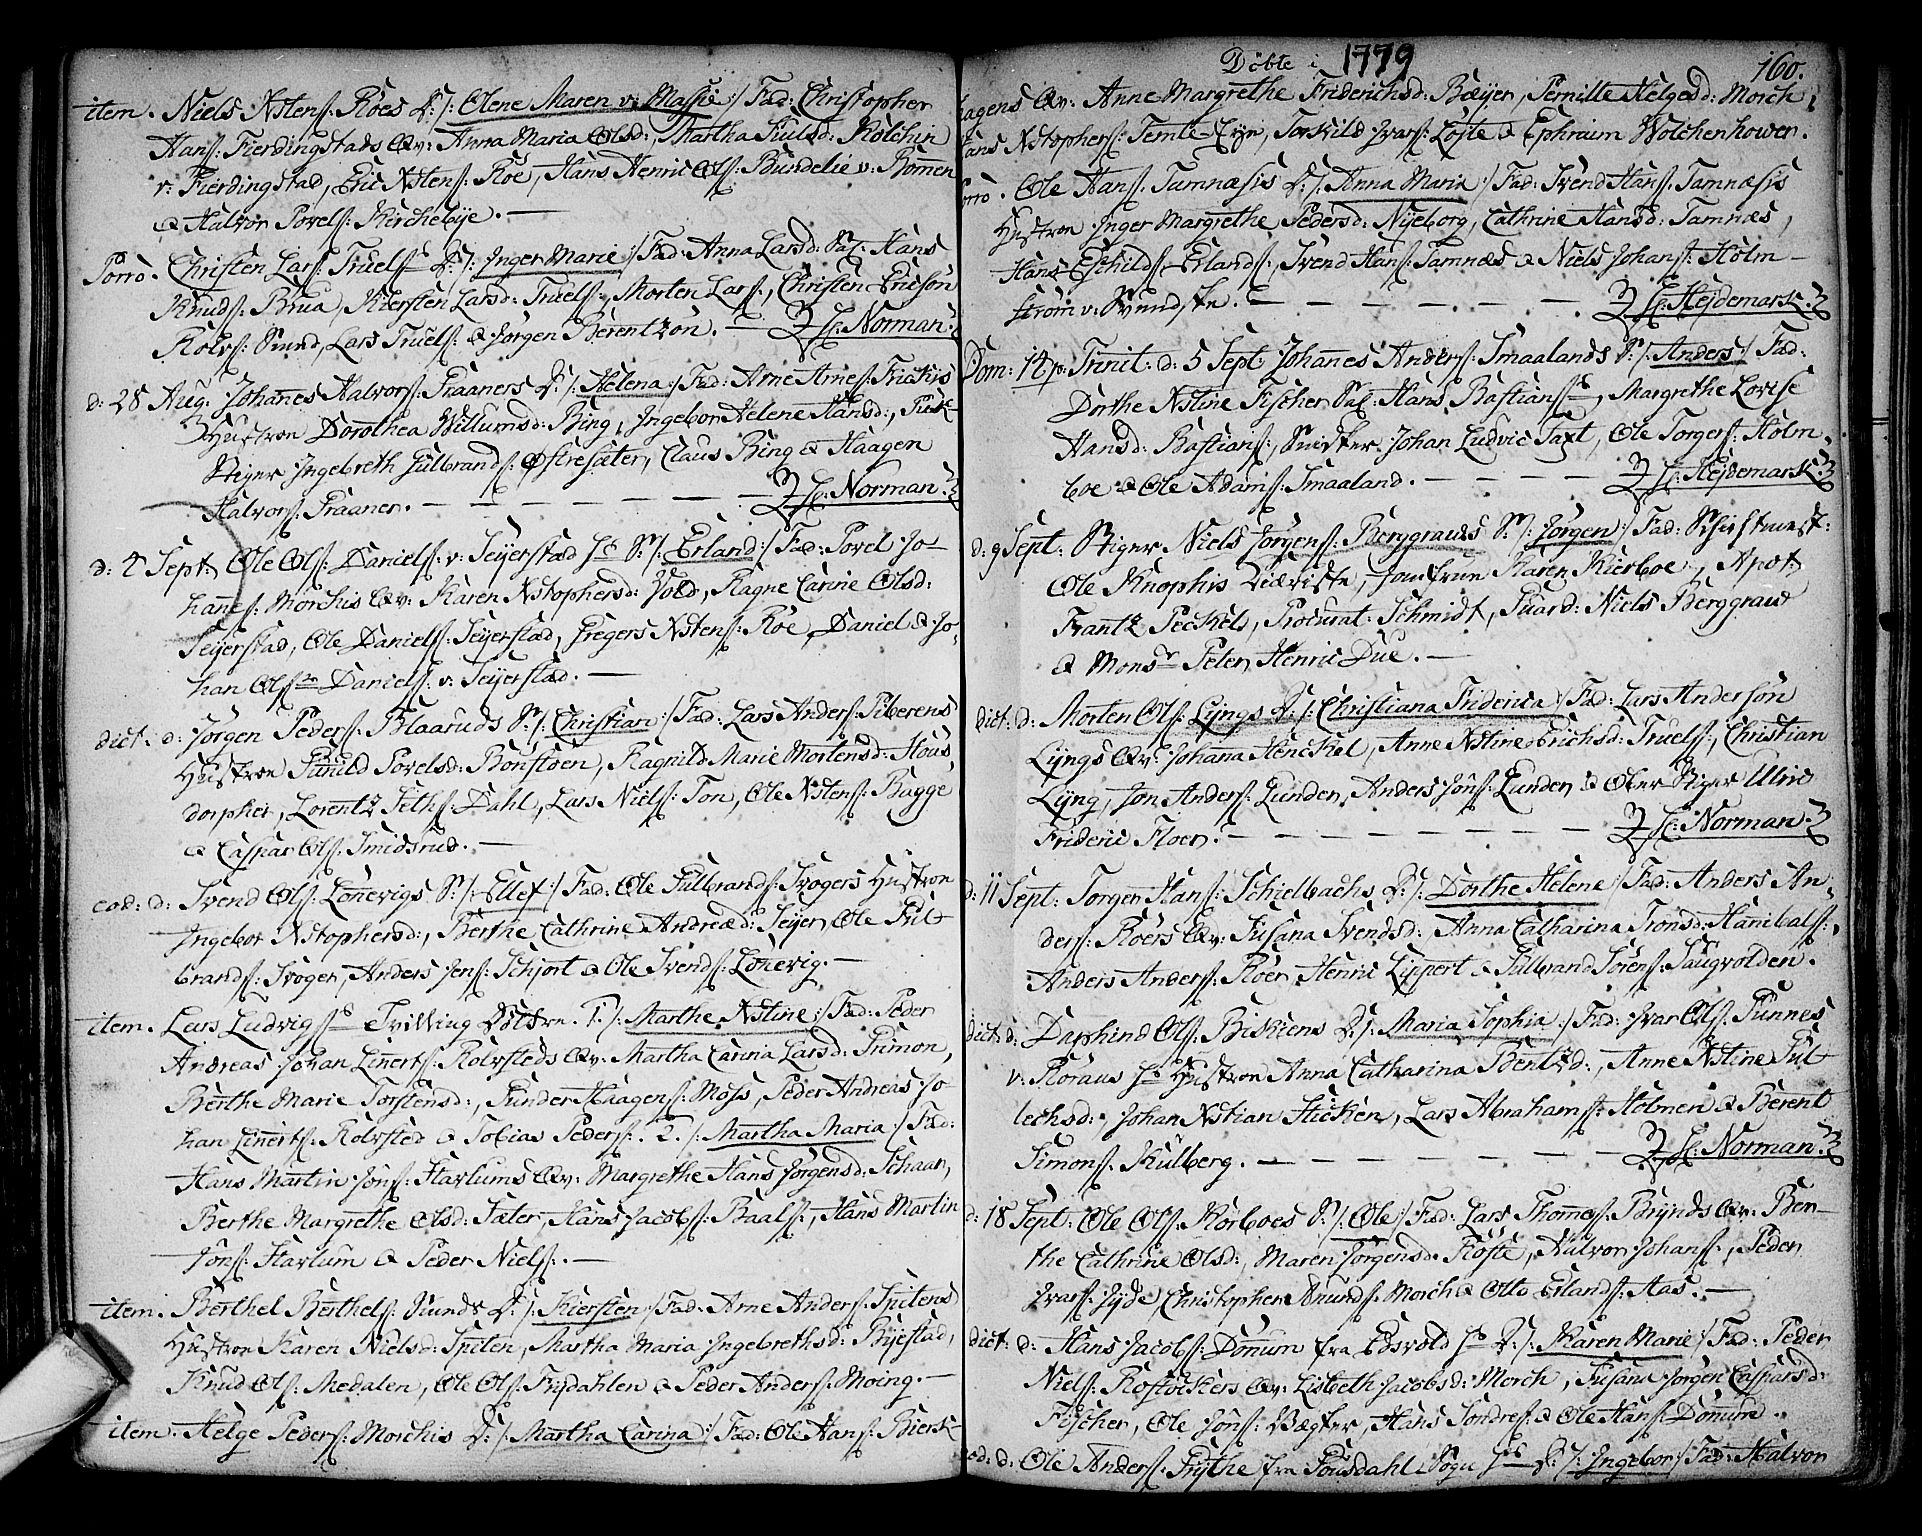 item. Niels Xstens: Röes D: /: Olene Maren v: Massie :/ Fad: Christopher
Hans: Fierdingstads Qv: Anna Maria Olsd:, Martha Juulsd: Kolchin
v: Fierdingstad, Eric Xstens: Röe, Hans Henric Ols: Bundelie v: Bomen
& Halvor Povels: Kirchebÿe. —
Porro. Christen Lars: Truels D: /: Inger Marie :/ Fad: Anna Larsd: Sal: Hans
Knuds: Brua, Kiersten Larsd: Truels:, Morten Lars:, Christen Ericson
Rolvs: Sund, Lars Truels: & Jörgen Berentzon. — Hr: Norman.
d: 28 Aug: Johannes Halvors: Praaners D: /: Helena :/ Fad: Arne Arnes: Frickis
Hustroe Dorothea Willumsd: Bing, Ingebor Helene Hansd:,
Stiger Ingebreth Gulbrands: Östresæter, Claus Bing & Haagen
Halvors: Praaner. — Hr: Norman.
d: 4 Sept: Ole Ols: Daniels: v: Seÿerstad S: /: Erland :/ Fad: Povel Jo-
hanes: Morchis Qv: Karen Xstophersd: Vold, Ragne Carine Olsd:
Seÿerstad, Ole Daniels: Seÿerstad, Gregers Xstens: Röe, Daniel & Jo-
han Ols: Daniels: v: Seÿerstad. —
dict: d: Jörgen Peders: Blaaruds S: /: Christian :/ Fad: Lars Anders: Piberens
Hustroe Gunild Povelsd: Bönstöen, Ragnild Marie Mortensd: Hous-
dorpher, Lorentz Seths: Dahl, Lars Niels: Ton, Ole Xstens: Bagge
& Caspar Ols: Smidsrud. —
eod: d: Svend Ols: Lönevigs S: /: Ellef :/ Fad: Ole Gulbrands: Svogers Hustroe
Ingebor Xstophersd:, Berthe Cathrine Andreæd: Seÿer, Ole Gul-
brands: Svoger, Anders Jens: Schjort & Ole Svends: Lönevig. —
item. Lars Ludvigs: Tvilling Döttre. 1. /: Marthe Xstine :/ Fad: Peder
Andreas Johan Linerts: Rolvsteds Qv: Martha Carina Larsd: Primon,
Berthe Marie Torstensd:, Gunder Haagens: Moss, Peder Andreas Jo-
han Linerts: Rolvsted & Tobias Peders: 2. /: Martha Maria :/ Fad:
Hans Martin Jons: Harlums Qv: Margrethe Hans Jörgensd: Schaar,
Berthe Margrethe Olsd: Sæter, Hans Jacobs: Baals:, Hans Martin
Jons: Harlum & Peder Niels:. —
item. Berthel Berthels: Sunds D: /: Kiersten :/ Fad: Arne Anders: Spitens
Hustroe Karen Nielsd: Spiten, Martha Maria Ingebrethsd: Bÿestad,
Knud Ols: Medalen, Ole Ols: Frÿdahlen & Peder Anders: Moing. —
item. Helge Peders: Morchis D: /: Martha Carina :/ Fad: Ole Hans: Biersk-
Döbte i 1779 160.
hagens Qv: Anne Margrethe Friderichsd: Bæÿer, Pernille Helgesd: Morch,
Hans Xstophers: Temte Eÿn, Torskild Ivars: Löÿte & Ephraim Wolchenhower.
Porro. Ole Hans: Tamnæsis D: /: Anna Maria :/ Fad: Svend Hans: Tamnæsis
Hustroe Inger Margrethe Pedersd: Nÿeborg, Cathrine Hansd: Tamnæs,
Hans Eschilds: Erlands:, Svend Hans: Tamnæs & Niels Johans: Holm-
ström v: Svendske. — Hr: Hejdemark.
Dom: 14 p: Trinit: d: 5 Sept: Johanes Anders: Smaalands S: /: Anders :/ Fad:
Dorthe Xstine Fischer Sal: Hans Bastians:, Margrethe Lovise
Hansd: Bastians:, Snedker Johan Ludvic Taxt, Ole Torgers: Holm-
boe & Ole Adams: Smaaland. — Hr: Hejdemark.
d: 9 Sept: Stiger Niels Jörgens: Berggrauds S: /: Jörgen :/ Fad:
Ole Knophis Jomfrue Karen Kierboe, Apot:
Frantz Peckel, Procurat: Schmidt, Guard: Niels Berggraw
& Monsr Peter Henric Due. —
dict: d: Morten Ols: Lÿngs D: /: Christiana Friderica :/ Fad: Lars Anderson
Lÿngs Qv: Johana Henckel, Anne Xstine Erichsd: Truels:, Christian
Lÿng, Jon Anders: Lunden, Anders Jöns: Lunden & Ober Stiger Ulric
Frideric Floer. — Hr: Norman.
d: 11 Sept: Torger Hans: Schielbachs D: /: Dorthe Helene :/ Fad: Anders An-
ders: Röers Qv: Susana Svendsd: Anna Catharina Tronsd: Hanibals:,
Anders Anders: Röer, Henric Lippert & Gulbrand Sörens: Saugvolden.
dict: d: Daphind Ols: Biskiens D: /: Maria Sophia :/ Fad: Ivar Ols: Punnes
v: Röraus Hustroe Anna Catharina Bentsd:, Anne Xstine Gul-
lechsd: Johan Xstian Hicken, Lars Abrahams: Holmen & Berent
Simons: Kulberg. — Hr: Norman.
d: 18 Sept: Ole Ols: Korboes S: /: Ole :/ Fad: Lars Thomes: Brÿnds Qv: Ber-
the Cathrine Olsd:, Maren Jörgensd: Röste, Halvor Johans:, Peder
Ivars: Jÿde, Christopher Anunds: Morch & Otto Erlands: Aas. —
dict: d: Hans Jacobs: Dönum fra Edsvold D: /: Karen Marie :/ Fad: Peder
Niels: Rostockers Qv: Lisbeth Jacobsd: Morch, Susana Jörgen Caspersd:
Fischer, Ole Jöns: Vægter, Hans Sondres: & Ole Hans: Dönum.
eod: d: Ole Anders: Frÿthe fra Gousdahl Sogn D: /: Ingebor :/ Fad: Halvor